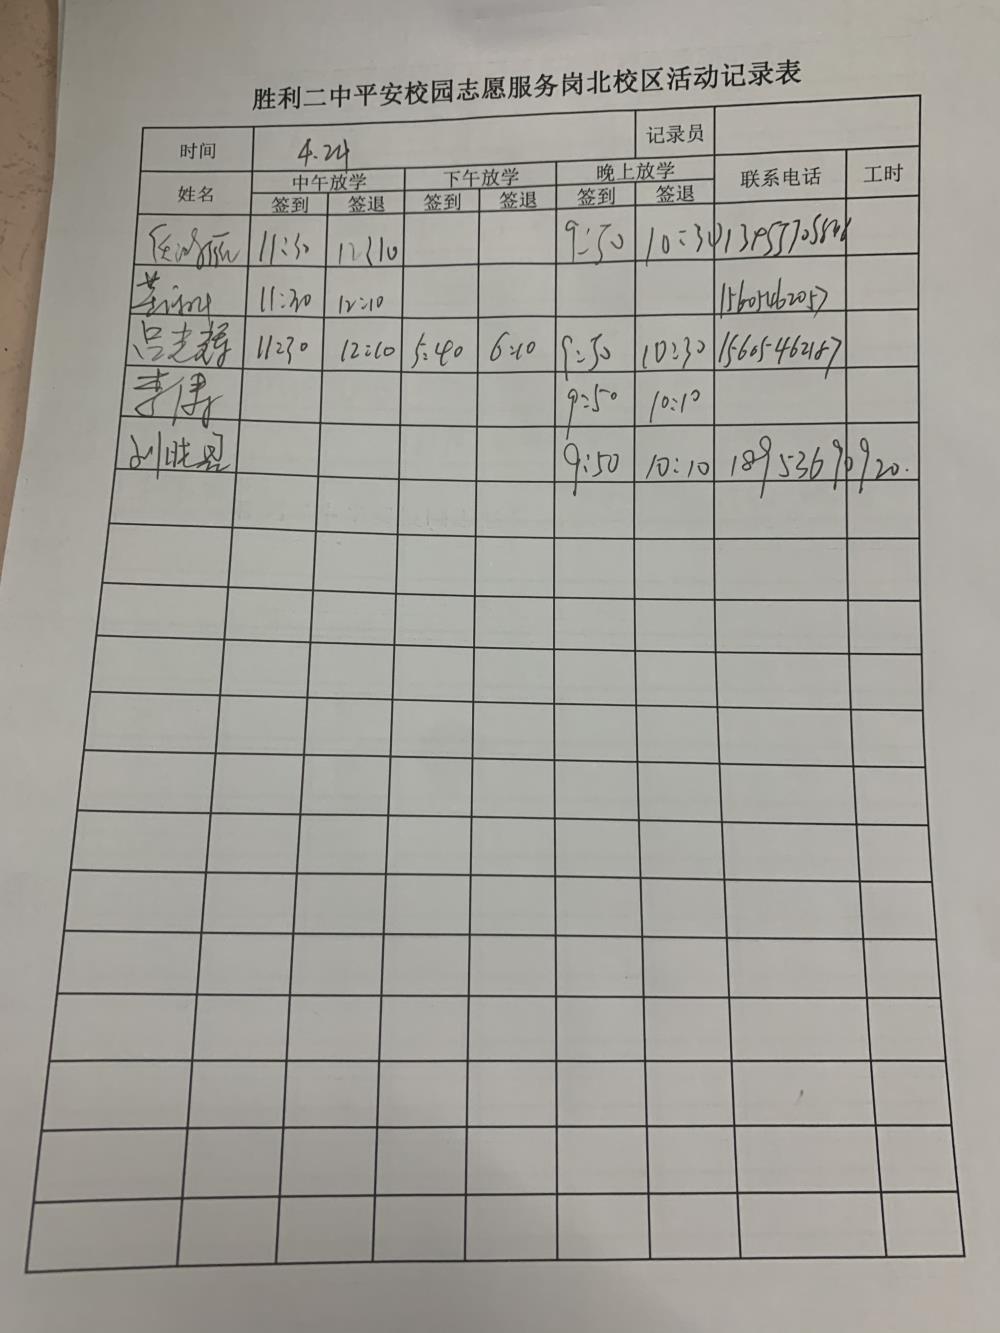 胜利二中平安校园志愿服务岗北校区活动记录表
时间 4.24 记录员
姓名 中午放学 下午放学 晚上放学 联系电话 工时
签到 签退 签到 签退 签到 签退
11:30 12:10 9:50 10:30
11:30 12:10 15605462057
吕志 11:30 12:10 5:40 6:10 9:50 10:30 15605462187
李 9:50 10:10
刘晓 9:50 10:10 18953690920.